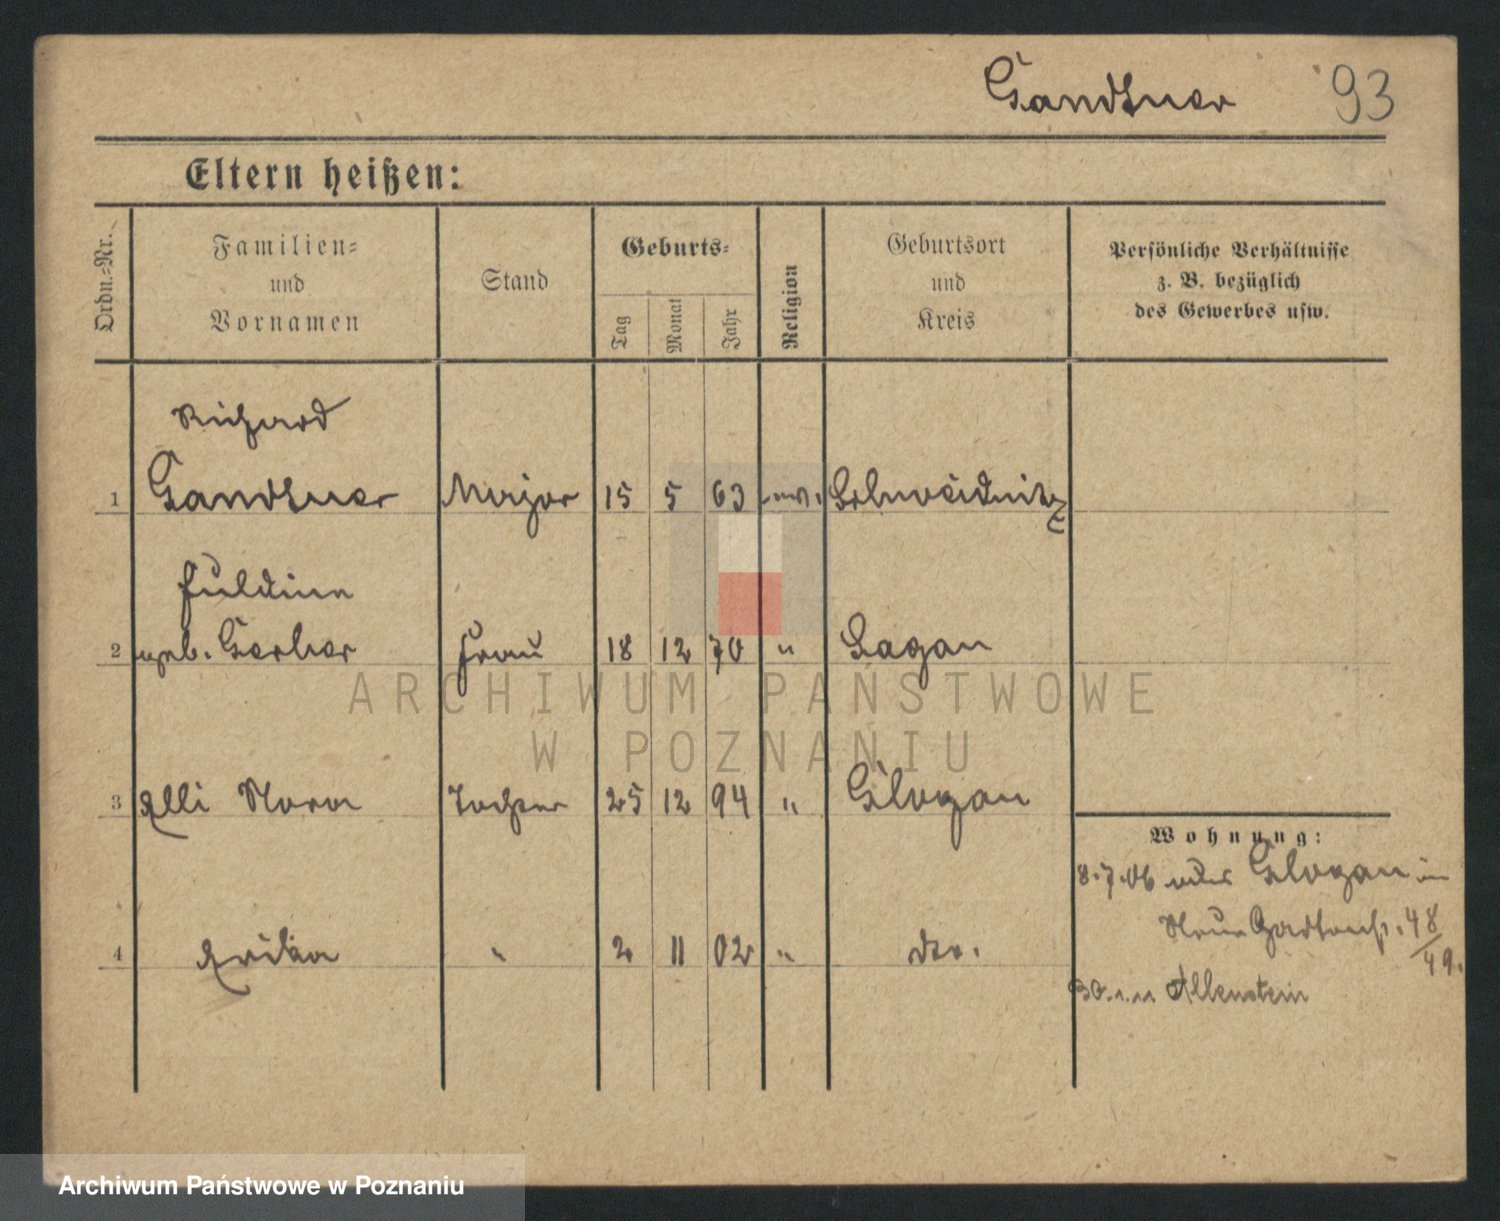 Gandtner 93
Eltern heißen:
Ordn.=Nr. Familien= und Vornamen Stand Geburts= Tag Monat Jahr Religion Geburtsort und Kreis Persönliche Verhältnisse z. B. bezüglich des Gewerbes usw.
Richard
1 Gandtner Major 15 5 63 ev. Schweidnitz
2 geb. Gerber Frau 18 12 70 " Sagan
ARCHIWUM PAŃSTWOWE
W POZNANIU
3 Elli Nora Tochter 25 12 94 " Glogau
Wohnung:
8.7.06 Glogau in
48/49.
4 Erika " 2 11 02 " dto.
30.1.11 Allenstein
Archiwum Państwowe w Poznaniu